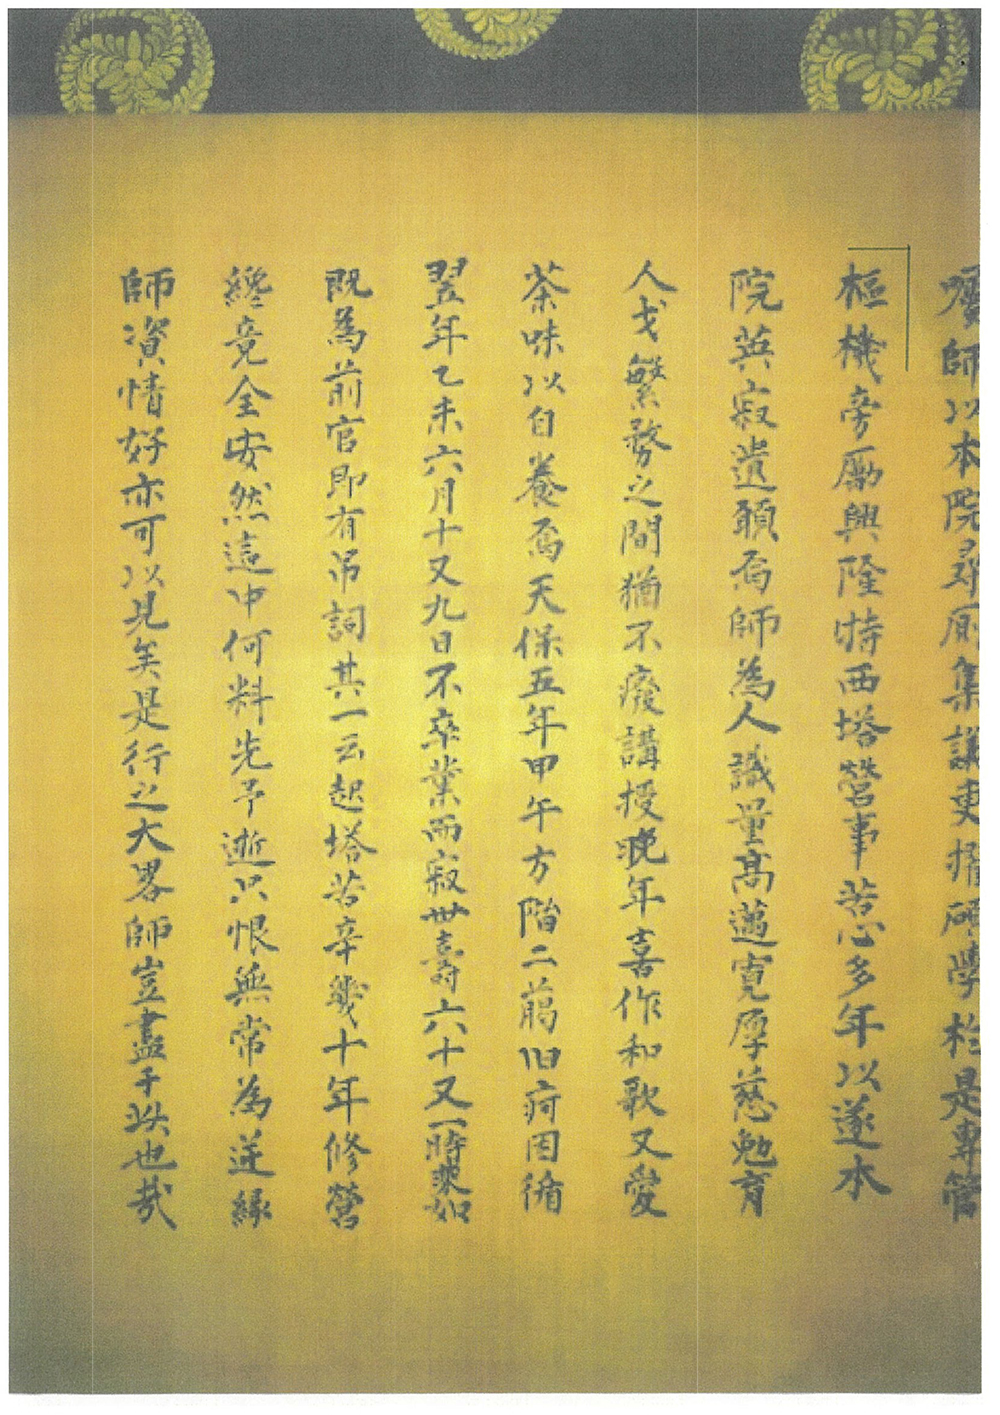 囑師以本院尋廁集議更擢碩學於是專管
樞機旁勵興隆特西塔營事苦心多年以遂本
院英寂遺願焉師為人識量高邁寬厚慈勉育
人戈繁務之間猶不廢講授晚年喜作和歌又愛
茶味以自養焉天保五年甲午方階二﨟旧痾因循
翌年乙未六月十又九日不卒業而寂世壽六十又一時乘如
既為前官即有吊詞其一云起塔苦辛幾十年修營
纔竟全安然這中何料先予逝只恨無常為逆緣
師資情好亦可以見矣是行之大畧師豈盡于此也哉